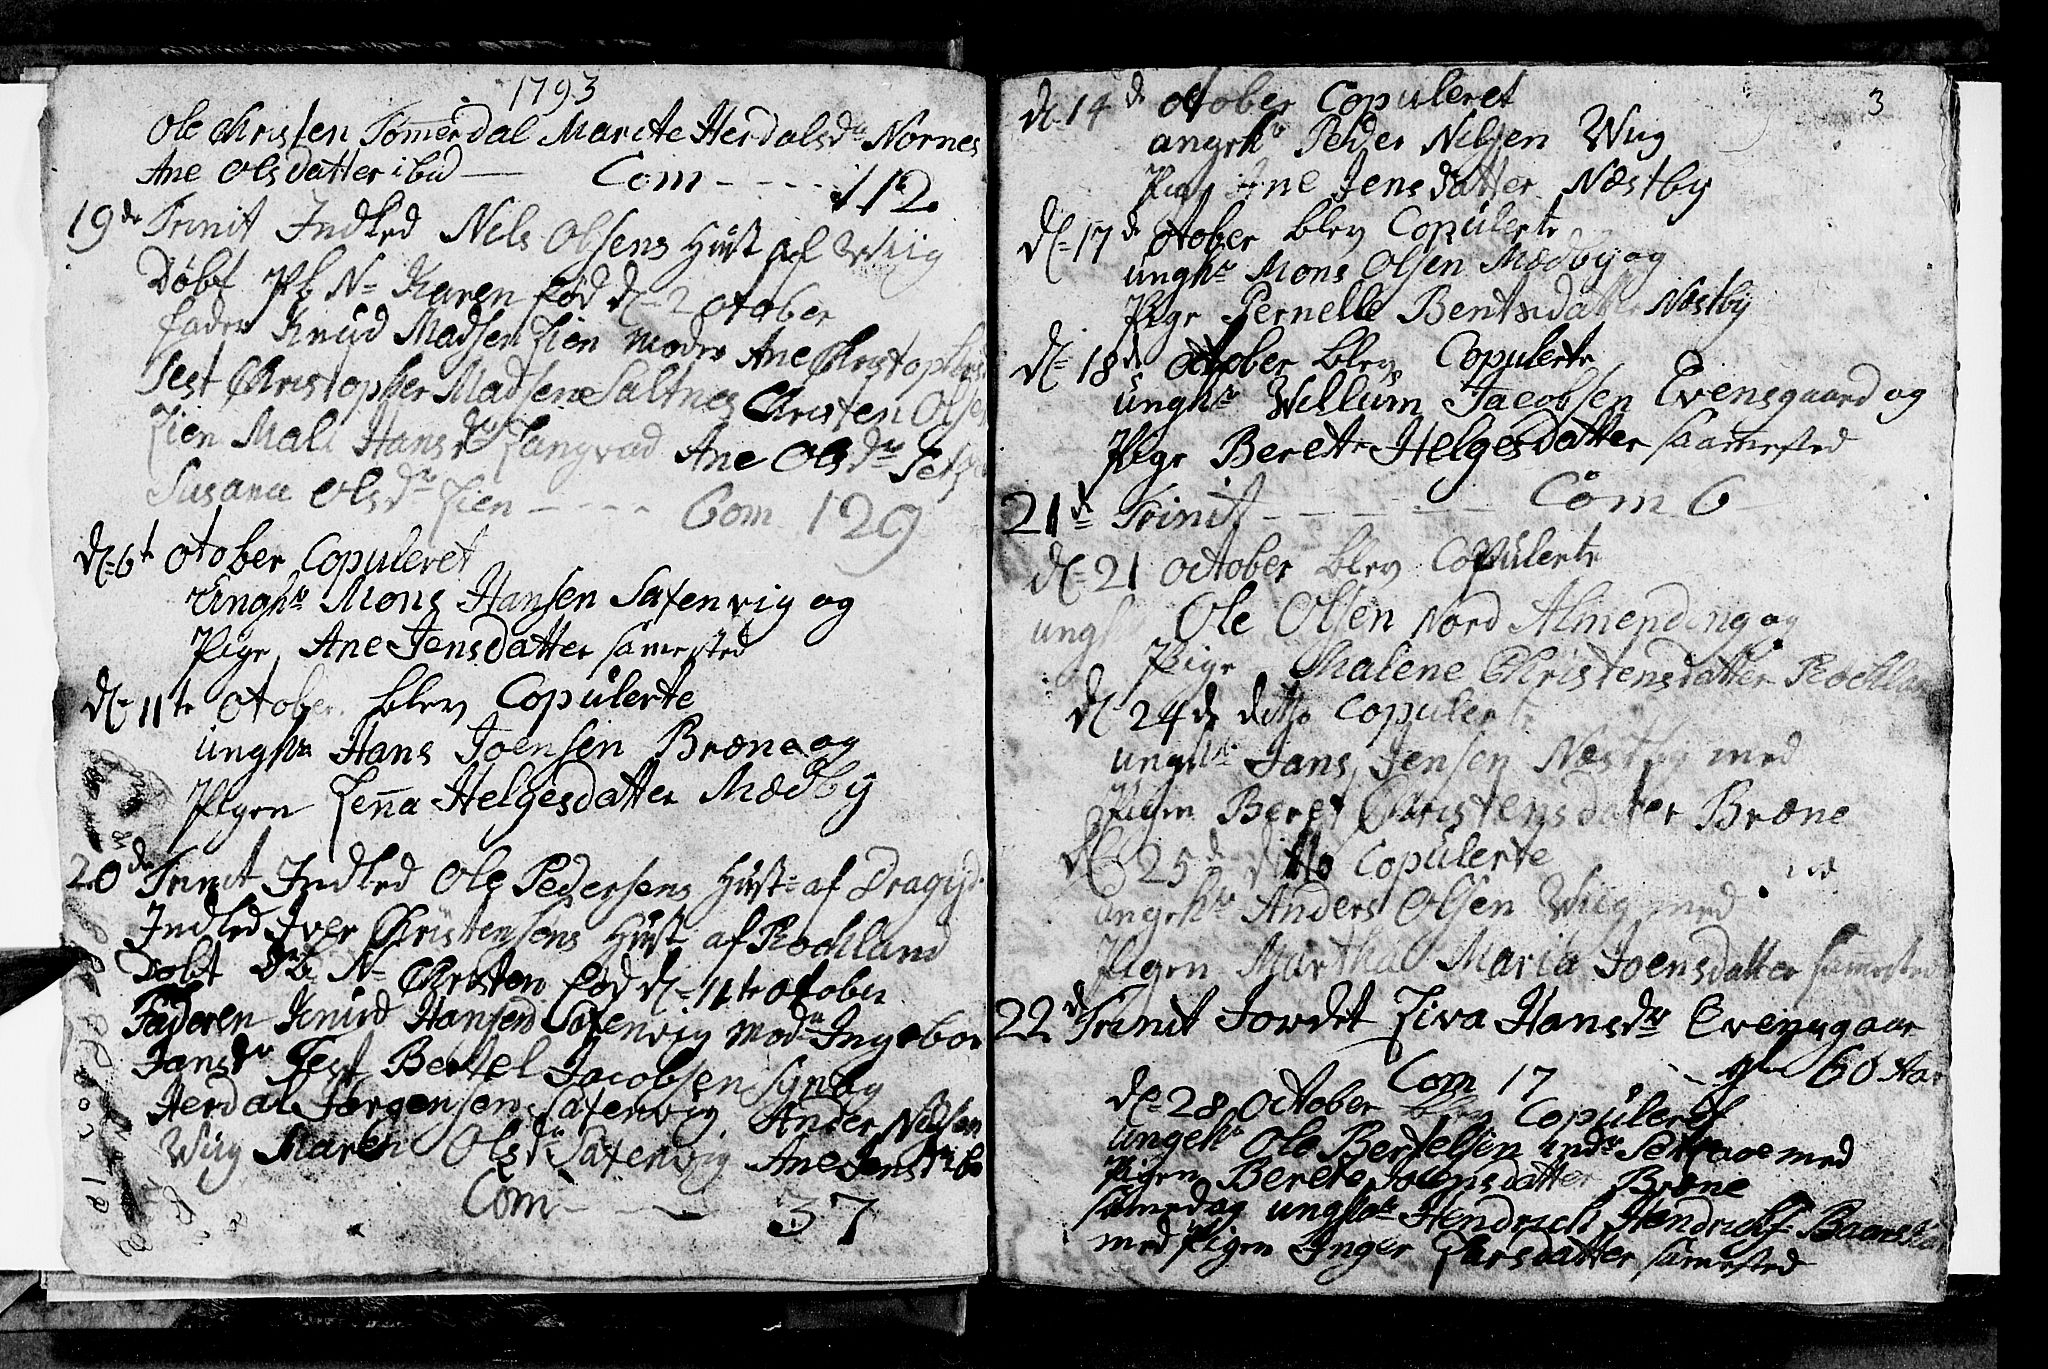 1793
Ole Christen Tömmerdal Marite Herdalsdr Nornes
Ane Olsdatter ibid — Com - - - - 112
19de Trinit Indled Nils Olsens Hust af Wiig
Döbt Pb N= Karen född d= 2 otober
fader Knud Madsen Lien moder Ane Christophers
Test Christopher Madsen Saltnes Christen Olsen
Lien Mali Hansdr Langvad Ane Olsdr
Susana Olsdr Lien - - - - Com 129
d= 6te otober Copuleret
Unghr Mons Hansen Saxenvig og
Pige Ane Jensdatter samested
d= 11te otober blev Copulerte
unghr Hans Joensen Bræne og
Pigen Lenna Helgesdatter Mædby
20de Trinit Indled Ole Pedersens Hust= af Dragejd
Indled Iver Christensens Hust af Rochland
Döbt Db N= Christen föd d= 11te otober
Faderen Knud Hansen Saxenvig modr Ingebor
Jansdr Test Bertel Jacobsen Synby
Herdal Jørgensen Saxenvig Ander Nielsen
Wiig Maren Olsdr Saxenvig Ane Jensdr ibd
Com - - - 37
3
d= 14de otober Copuleret
ungehr Peder Nilsen Wiig
Pige Ane Jensdatter Næstby
d= 17de otober blev Copulerte
unghr Mons Olsen Mædby og
Pige Pernelle Bentsdatter Næstby
d= 18de october blev Copulerte
unghr Willum Jacobsen Evensgaard og
Pige Berete Helgesdatter saamested
21de Trinit - - - - - Com 6
d= 21 october blev Copulerte
ungh Ole Olsen Nord Almending og
Pige Malene Christensdatter Rochlan
d= 24de ditto Copulerte
unghr Jans Jensen Næstby med
Pigen Beret Christensdatter Bræne
d= 25de ditto Copulerte
ungehr Anders Olsen Wiig med
Pigen Martha Maria Joensdatter samested
22de Trinit Jordet Liva Hansdr Evensgaar
Com 17 - - gl= 60 Aar
d= 28 october blev Copuleret
ungehr Ole Bertelsen med
Pigen Berete Joensdatter Bræne
samedag unghr Hendrich Hendrichs=
med Pigen Inger Larsdatter samested